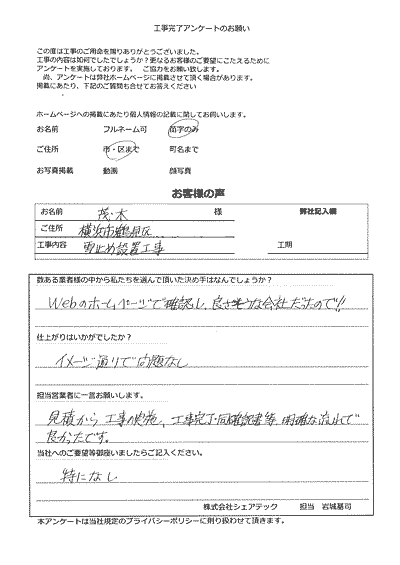 工事完了アンケートのお願い
この度は工事のご用命を賜りありがとうございました。
工事の内容は如何でしたでしょうか？更なるお客様のご要望にこたえるために
アンケートを実施しております。 ご協力をお願い致します。
尚、アンケートは弊社ホームページに掲載させて頂く場合があります。
掲載にあたり、下記のご質問も合せてお答えください
ホームページへの掲載にあたり個人情報の記載に関してお伺いします。
お名前 フルネーム可 苗字のみ
ご住所 市・区まで 町名まで
お写真掲載 動画 顔写真
お客様の声
お名前 茂木 様 弊社記入欄
ご住所 横浜市鶴見区
工事内容 雪止め設置工事 工期
数ある業者様の中から私たちを選んで頂いた決め手はなんでしょうか？
Webのホームページで確認し、良さそうな会社だったので!!
仕上がりはいかがでしたか？
イメージ通りで問題なし
担当営業者に一言お願いします。
見積から工事の実施、工事完了同確認書等、明確な流れで
良かったです。
当社へのご要望等御座いましたらご記入ください。
特になし
株式会社シェアテック 担当 岩城基司
本アンケートは当社規定のプライバシーポリシーに則り扱わせて頂きます。